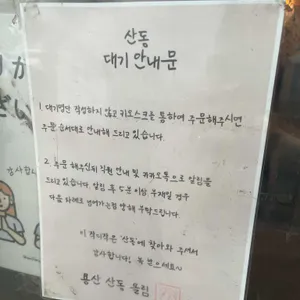 산동
대기 안내문
1. 대기명단 작성하지 않고 키오스크를 통하여 주문해주시면
주문 순서대로 안내해 드리고 있습니다.
2. 주문 해주신뒤 직원 안내 및 카카오톡으로 알림을
드리고 있습니다. 알림 후 5분이상 부재일 경우
다음 차례로 넘어가는점 양해 부탁드립니다.
'산동'에 찾아와 주셔서
감사합니다! 복 받으세요~
용산 산동 올림
감사합니